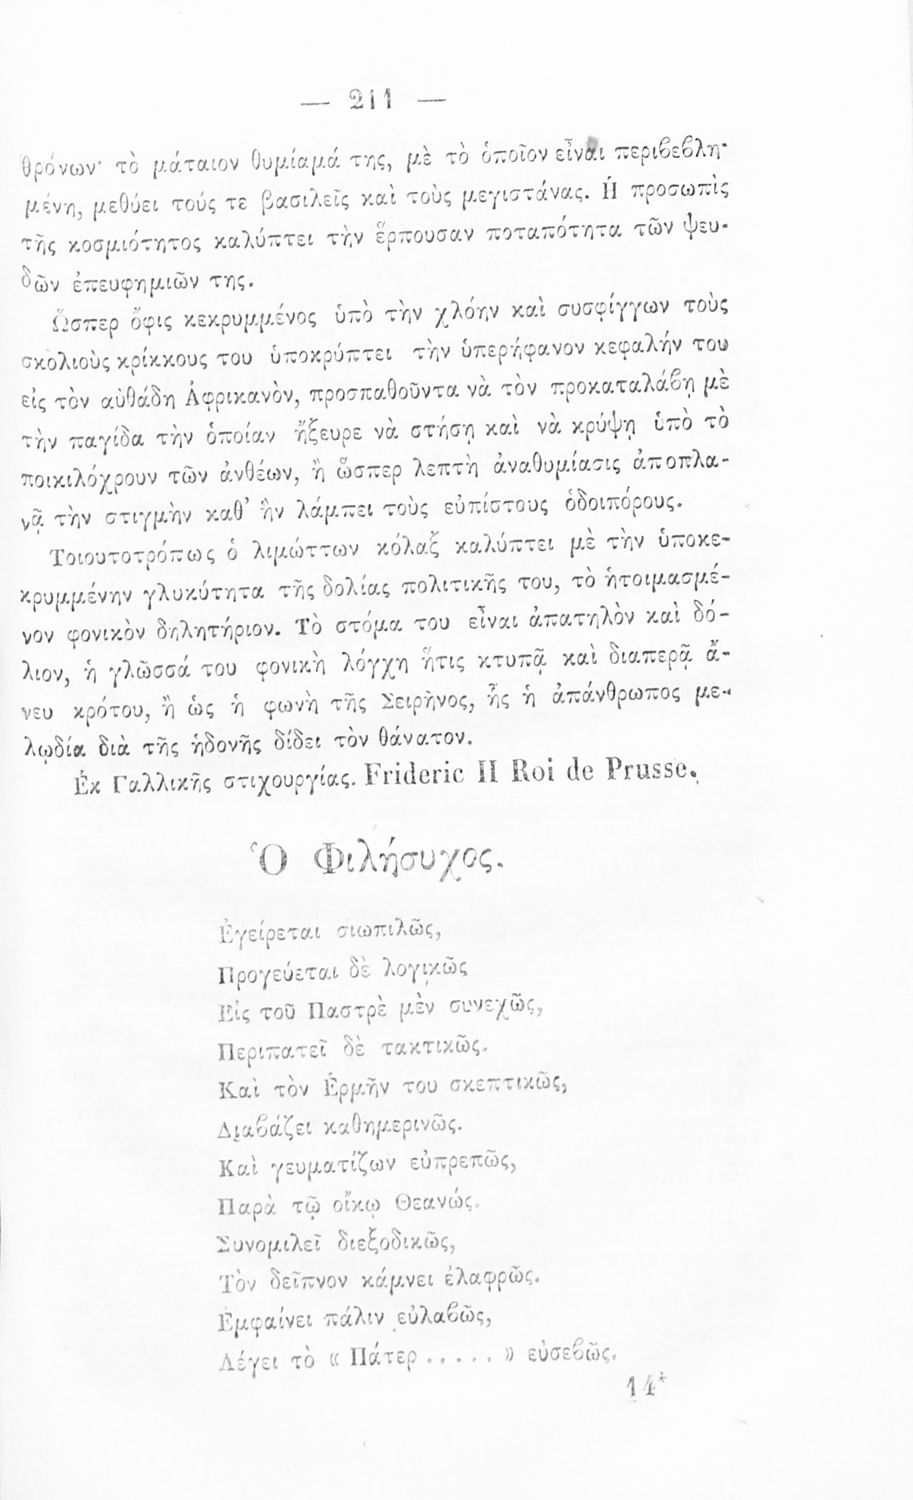 — 211 —
θρόνων· τὸ μάταιον θυμίαμά της, μὲ τὸ ὁποῖον εἶναι περιβεβλη-
μένη, μεθύει τούς τε βασιλεῖς καὶ τοὺς μεγιστάνας. Ἡ προσωπὶς
τῆς κοσμιότητος καλύπτει τὴν ἕρπουσαν ποταπότητα τῶν ψευ-
δῶν ἐπευφημιῶν της.
Ὥσπερ ὄφις κεκρυμμένος ὑπὸ τὴν χλόην καὶ συσφίγγων τοὺς
σκολιοὺς κρίκκους του ὑποκρύπτει τὴν ὑπερήφανον κεφαλήν του
εἰς τὸν αὐθάδη Ἀφρικανὸν, προσπαθοῦντα νὰ τὸν προκαταλάβῃ μὲ
τὴν παγίδα τὴν ὁποίαν ἤξευρε νὰ στήσῃ καὶ νὰ κρύψῃ ὑπὸ τὸ
ποικιλόχρουν τῶν ἀνθέων, ἢ ὥσπερ λεπτὴ ἀναθυμίασις ἀποπλα-
νᾷ τὴν στιγμὴν καθ’ ἣν λάμπει τοὺς εὐπίστους ὁδοιπόρους.
Τοιουτοτρόπως ὁ λιμώττων κόλαξ καλύπτει μὲ τὴν ὑποκε-
κρυμμένην γλυκύτητα τῆς δολίας πολιτικῆς του, τὸ ἡτοιμασμέ-
νον φονικὸν δηλητήριον. Τὸ στόμα του εἶναι ἀπατηλὸν καὶ δό-
λιον, ἡ γλῶσσά του φονικὴ λόγχη ἥτις κτυπᾷ καὶ διαπερᾷ ἄ-
νευ κρότου, ἢ ὡς ἡ φωνὴ τῆς Σειρῆνος, ἧς ἡ ἀπάνθρωπος με-
λῳδία διὰ τῆς ἡδονῆς δίδει τὸν θάνατον.
Ἐκ Γαλλικῆς στιχουργίας. Frideric II Roi de Prusse.
Ὁ Φιλήσυχος.
Ἐγείρεται σιωπιλῶς,
Προγεύεται δὲ λογικῶς
Εἰς τοῦ Παστρὲ μὲν συνεχῶς,
Περιπατεῖ δὲ τακτικῶς.
Καὶ τὸν Ἑρμῆν του σκεπτικῶς,
Διαβάζει καθημερινῶς.
Καὶ γευματίζων εὐπρεπῶς,
Παρὰ τῷ οἴκῳ Θεανώς.
Συνομιλεῖ διεξοδικῶς,
Τὸν δεῖπνον κάμνει ἐλαφρῶς.
Ἐμφαίνει πάλιν εὐλαβῶς,
Λέγει τὸ « Πάτερ ..... » εὐσεβῶς.
14*